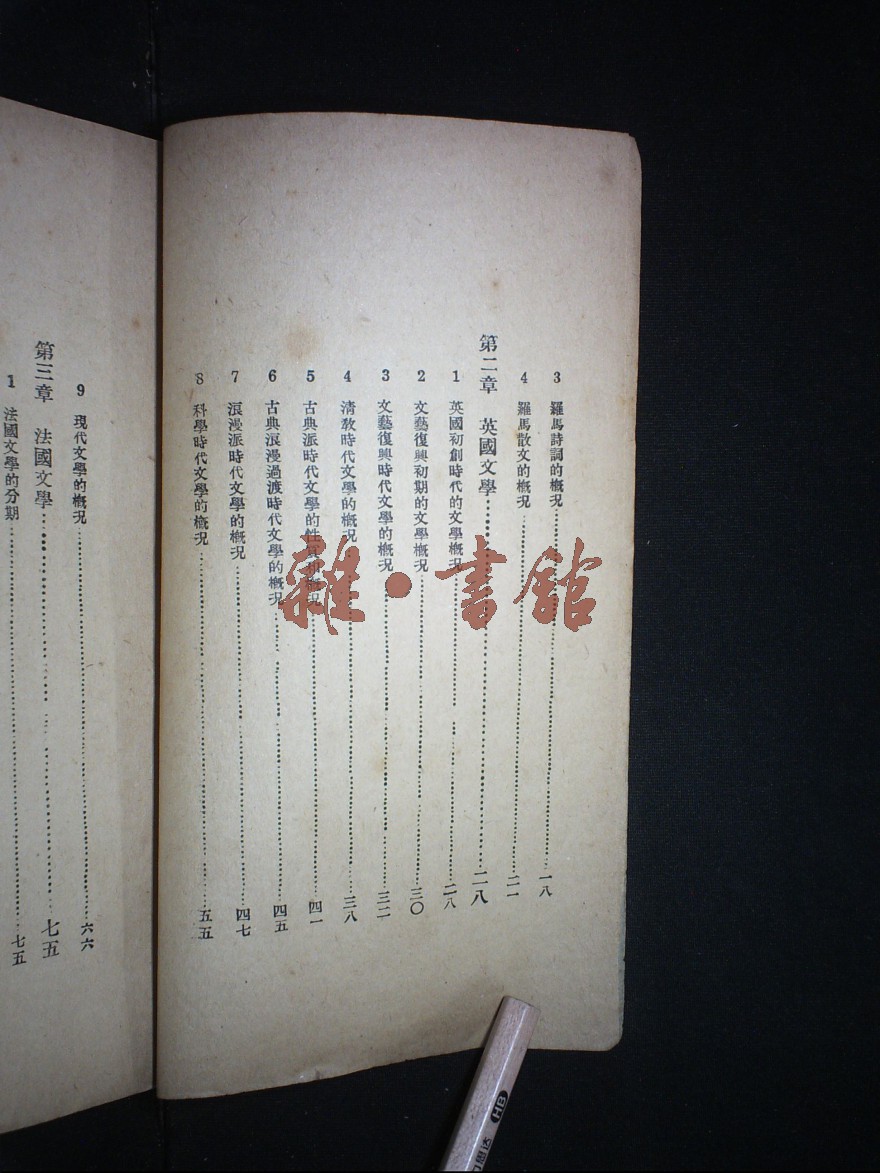 3 羅馬詩詞的概況……一八
4 羅馬散文的概況……二一
第二章 英國文學……二八
1 英國初創時代的文學概況……二八
2 文藝復興初期的文學概況……三〇
3 文藝復興時代文學的概況……三二
4 清教時代文學的概況……三八
5 古典派時代文學的性質和概況……四一
6 古典浪漫過渡時代文學的概況……四五
7 浪漫派時代文學的概況……四七
8 科學時代文學的概況……五五
9 現代文學的概況……六六
第三章 法國文學……七五
1 法國文學的分期……七五
雜·書館
HB